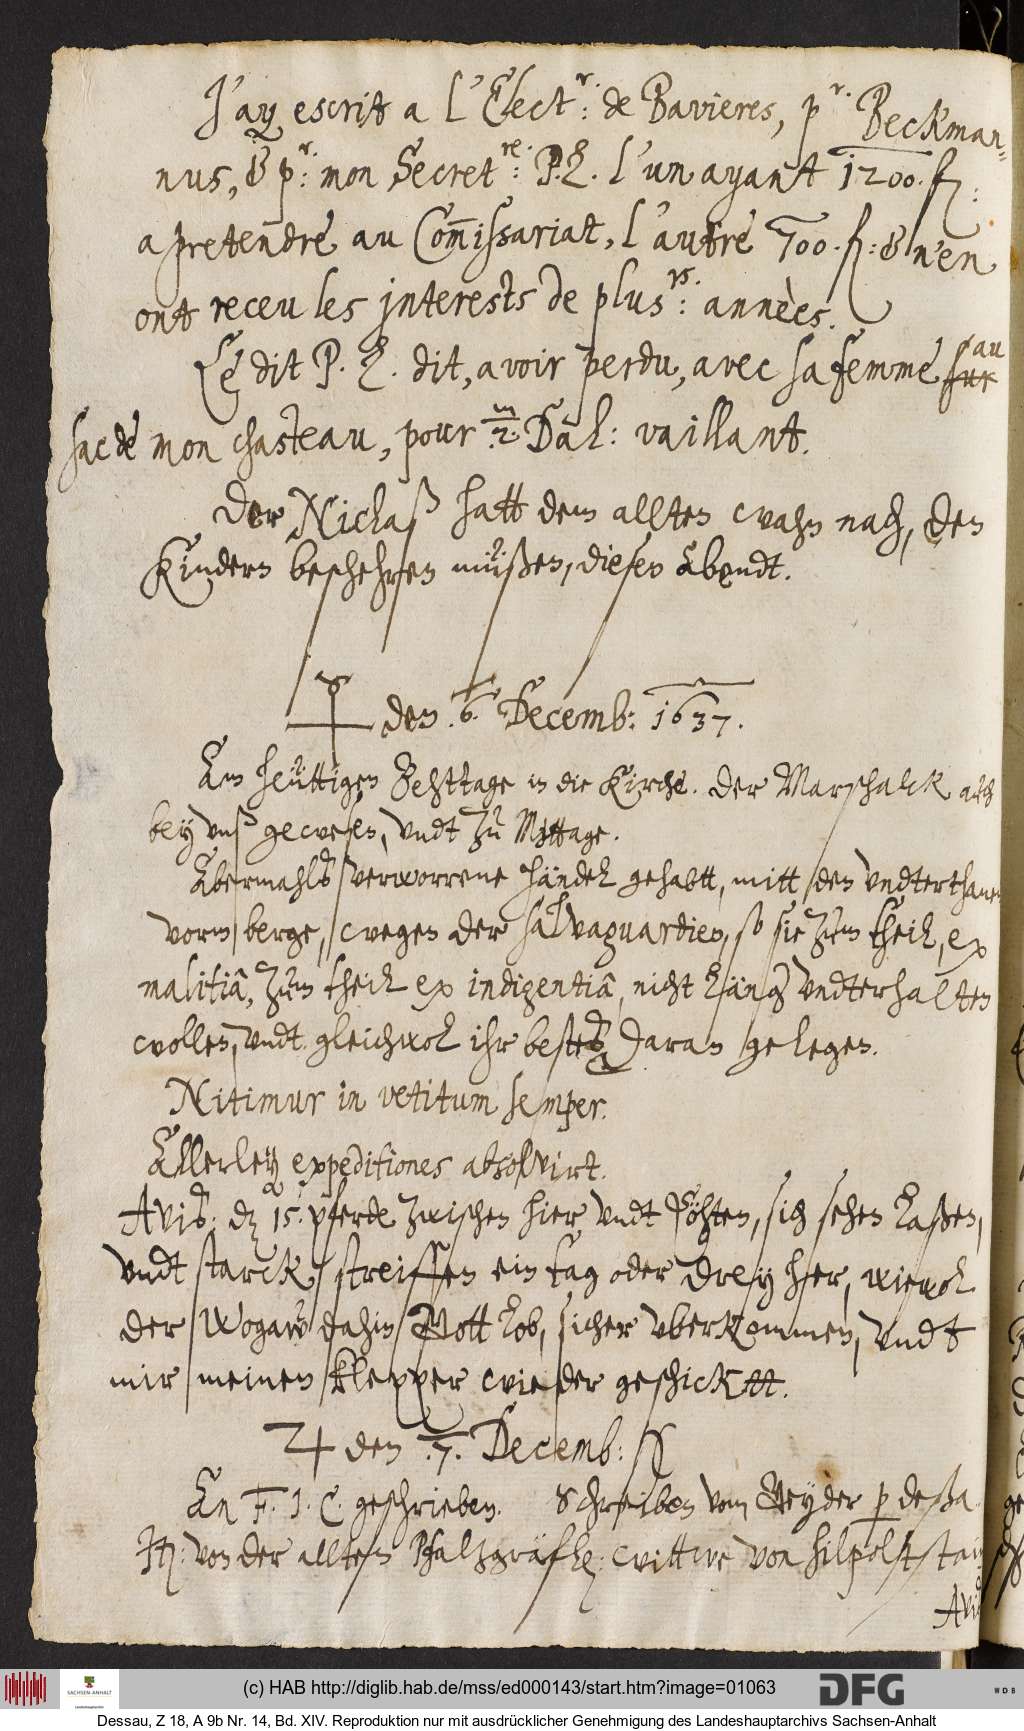 J'ay escrit a l'Elect.r: de Bavieres, p.r Beckman-
nus, & p.r: mon Secret.re: P.L. l'un ayant 1200. fl:
a pretendre au Com̅issariat, l'autre 700. fl: & n'en
ont receu les jnterests de plus.rs: années.
Le dit P. L. dit, avoir perdu, avec sa femme sur au
sac de mon chasteau, pour m/2 Dal: vaillant.
Der Niclaß hatt dem allten wahn nach, den
Kindern beschehren müßen, diesen Abendt.
☿ den .6. Decemb: 1637.
Am heüttigen Behttage in die Kirche. Der Marschalck auch
bey unß gewesen, undt zu Mittage.
Abermahls verworrene händel gehabtt, mitt den undterthanen
vorm berge, wegen der salvaguardien, so sie zum theil, ex
malitiâ, zum theil ex indigentiâ, nicht längs undterhalten
wollen, undt gleichwol ihr bestes daran gelegen.
Nitimur in vetitum semper.
Allerley expeditiones absolvirt.
Avis: dz 15. pferde zwischen hier undt Köhten, sich sehen laßen,
undt starck streiffen ein tag oder drey her, wiewol
der Wogaw dahin Gott lob, sicher uberkommen, undt
mir meinen klepper wieder geschicktt.
♃ den .7. Decemb:
An F. J. C. geschrieben. Schreiben vom Weyder p deßa.
It: von der alltem Pfalzgräfl: wittwe von hilpolstain
Avis
(c) HAB http://diglib.hab.de/mss/ed000143/start.htm?image=01063
SACHSEN-ANHALT
DFG
WDB
Dessau, Z 18, A 9b Nr. 14, Bd. XIV. Reproduktion nur mit ausdrücklicher Genehmigung des Landeshauptarchivs Sachsen-Anhalt